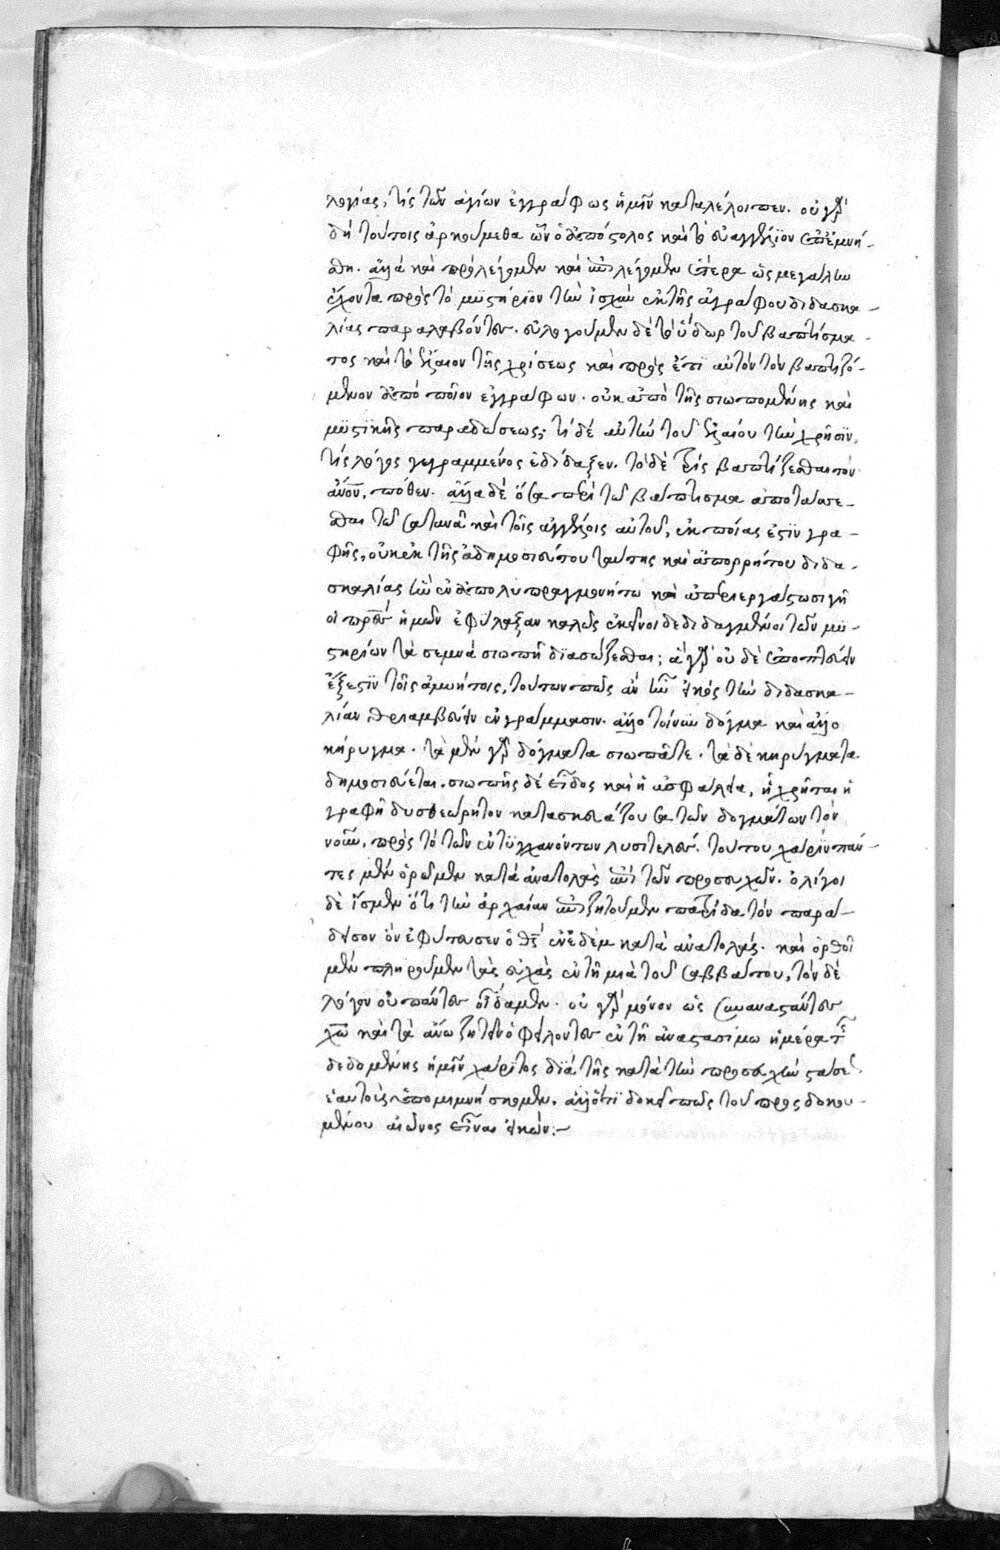 λογίας, τίς τῶν ἁγίων ἐγγράφως ἡμῖν καταλέλοιπεν. οὐ γὰρ
δὴ τούτοις ἀρκούμεθα ὧν ὁ ἀπόστολος καὶ τὸ εὐαγγέλιον ἐπεμνή-
σθη. ἀλλὰ καὶ προλέγομεν καὶ ἐπιλέγομεν ἕτερα ὡς μεγάλην
ἔχοντα πρὸς τὸ μυστήριον τὴν ἰσχὺν ἐκ τῆς ἀγράφου διδασκα-
λίας παραλαβόντες. εὐλογοῦμεν δὲ τὸ ὕδωρ τοῦ βαπτίσμα-
τος καὶ τὸ ἔλαιον τῆς χρίσεως καὶ προς ἔτι αὐτὸν τὸν βαπτιζό-
μενον ἀπὸ ποίων ἐγγράφων. οὐκ ἀπὸ τῆς σιωπομένης καὶ
μυστικῆς παραδόσεως; τί δὲ αὐτὴν τοῦ ἐλαίου τὴν χρῆσιν,
τίς λόγος γεγραμμένος ἐδίδαξεν. τὸ δὲ τρὶς βαπτίζεσθαι τὸν
ἄνον, πόθεν. ἄλλα δὲ ὅσα περὶ τὸ βάπτισμα ἀποτάσσε-
σθαι τῷ σατανᾷ καὶ τοῖς ἀγγέλοις αὐτοῦ, ἐκ ποίας ἐστὶν γρα-
φῆς, οὐκ ἐκ τῆς ἀδημοσιεύτου ταύτης καὶ ἀπορρήτου διδα-
σκαλίας ἣν ἐν ἀπολυπραγμονήτω καὶ ἀπεριεργάστω σιγῇ
οἱ πρες ἡμῶν ἐφύλαξαν καλῶς ἐκεῖνοι δεδιδαγμένοι τῶν μυ-
στηρίων τὰ σεμνὰ σιωπῇ διασώζεσθαι; ἃ γὰρ οὐδὲ ἐποπτεύειν
ἔξεστιν τοῖς ἀμυήτοις, τούτων πῶς ἂν ἦν εἰκός τὴν διδασκα-
λίαν θριαμβεύειν ἐν γράμμασιν. ἄλλο τοίνυν δόγμα καὶ ἄλλο
κήρυγμα. τὰ μὲν γὰρ δόγματα σιωπᾶτε. τὰ δὲ κηρύγματα
δημοσιεύεται. σιωπῆς δὲ εἶδος καὶ ἡ ἀσφάλεια, ἧ χρῆται ἡ
γραφὴ δυσθεώρητον κατασκευάζουσα τῶν δογμάτων τὸν
νοῦν, πρὸς τὸ τῶν ἐντυγχανόντων λυσιτελές. τούτου χάριν πάν-
τες μὲν ὁρῶμεν κατὰ ἀνατολὰς ἐπὶ τῶν προσευχῶν. ὀλίγοι
δὲ ἴσμεν ὅτι τὴν ἀρχαίαν ἐπιζητοῦμεν πατρίδα τὸν παρά-
δεισον ὃν ἐφύτευσεν ὁ θς ἐν ἐδὲμ κατὰ ἀνατολάς. καὶ ὀρθοὶ
μὲν πληροῦμεν τὰς εὐχὰς ἐν τῇ μιᾷ τοῦ σαββάτου, τὸν δὲ
λόγον οὐ πάντες οἴδαμεν. οὐ γὰρ μόνον ὡς συναναστάντες
χω καὶ τὰ ἄνω ζητεῖν ὀφείλοντες ἐν τῇ ἀναστασίμω ἡμέρα τῆς
δεδομένης ἡμῖν χάριτος διὰ τῆς κατὰ τὴν προσευχὴν στάσεως
ἑαυτοὺς ὑπομιμνήσκομεν. ἀλλ' ὅτι δοκεῖ πως τοῦ προσδοκου-
μένου αἰῶνος εἶναι εἰκών:—